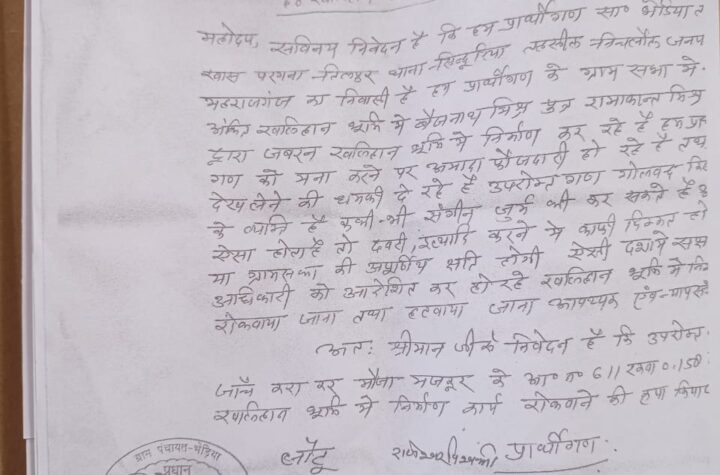 महोदय, सविनय निवेदन है कि हम प्रार्थीगण सा० भेडिया त
खास परगना-तिलपुर थाना-सिन्दुरिया तहसील निचलौल जनप
महराजगंज का निवासी है हम प्रार्थीगण के ग्राम सभा मे
अंकित खलिहान भूमि मे बैजनाथ मिश्र पुत्र रामाकान्त मिश्र
द्वारा जबरन खलिहान भूमि मे निर्माण कर रहे है हम प्रा
गण को मना करने पर अमादा फौजदारी हो रहे है तथ
देख लेने की धमकी दे रहे है उपरोक्त गण गोलबद कि
के व्यक्ति है कभी-भी संगीन जुर्म भी कर सकते है
ऐसा होता है तो इत्यादि करने मे काफी दिक्कत हो
या ग्रामसभा की अपूर्णिय क्षति होगी ऐसी दशामे सक्ष
अधिकारी को आदेशित कर हो रहे खलिहान भूमि मे निर
रोकवाया जाना तथा हटवाया जाना आवश्यक एंव-न्यायसं
अत: श्रीमान जी से निवेदन है कि उपरोक्त
जाँच करा कर मौजा मजकूर के आ० न० 611 रकबा 0.158
खलिहान भूमि मे निर्माण कार्य रोकवाने की कृपा किया
ग्राम पंचायत-भेडिया
प्रधान
प्रार्थीगण: